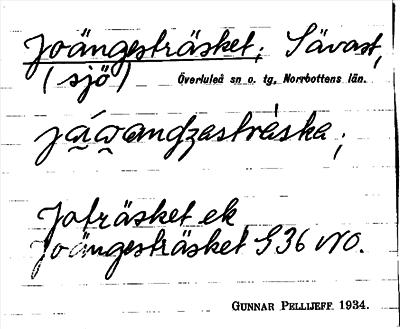 Joängesträsket; Sävast,
(sjö) Överluleå sn o. tg, Norrbottens län.
Joträsket ek,
Joängesträsket S 36 NO.
GUNNAR PELLIJEFF. 1934.